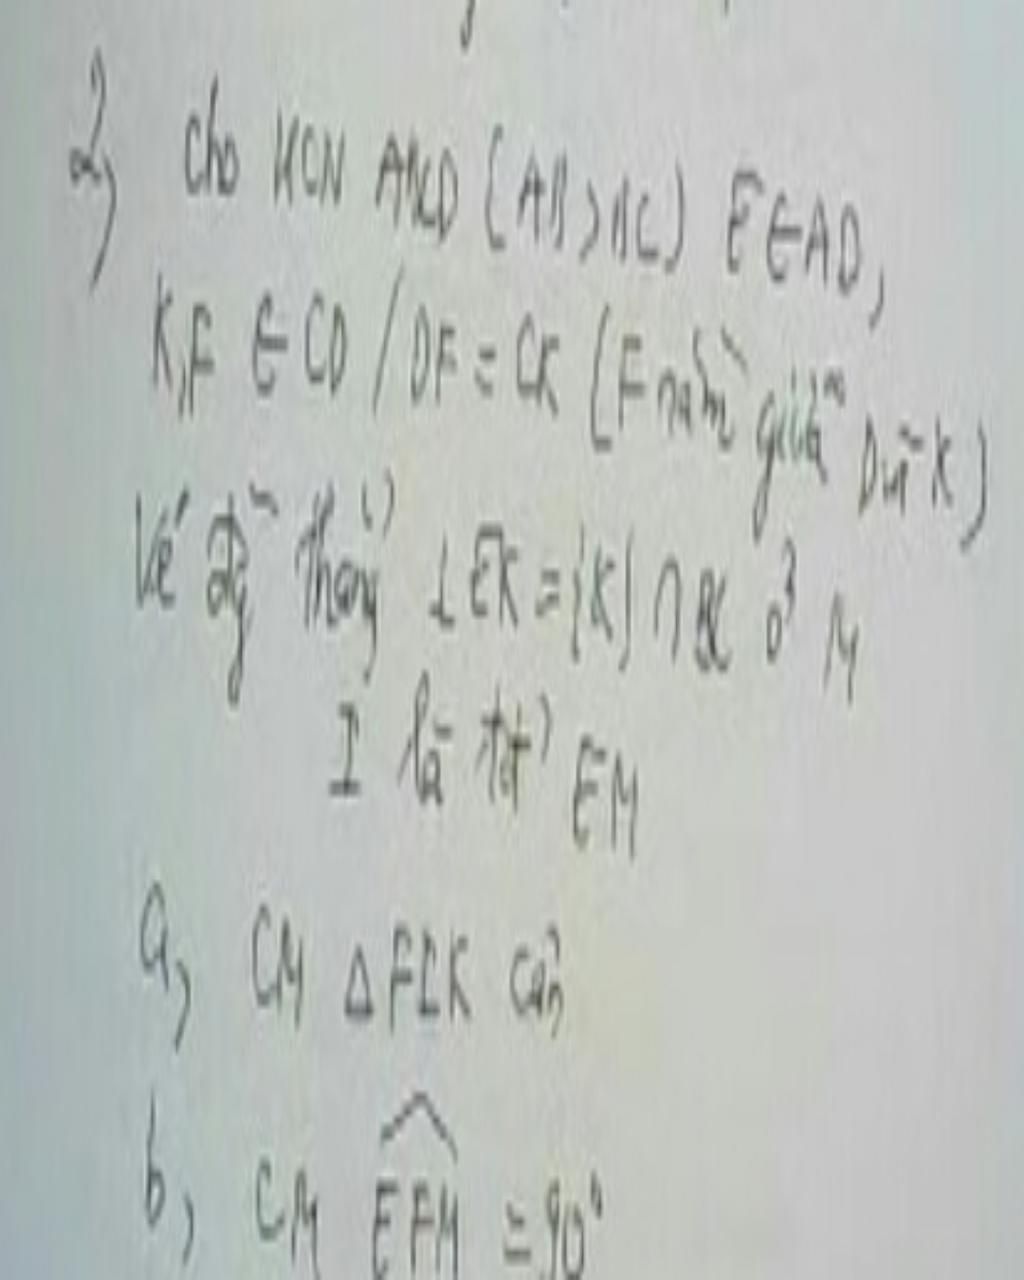 2) Cho HCN ABCD (AB > BC) E ∈ AD,
K,F ∈ CD / DF = CK (F nằm giữa D và K)
Vẽ đg thẳng ⊥ EK = {K} ∩ BC ở M
I là tđ EM
a) CM Δ FIK cân
b) CM \widehat{EFM} = 90°